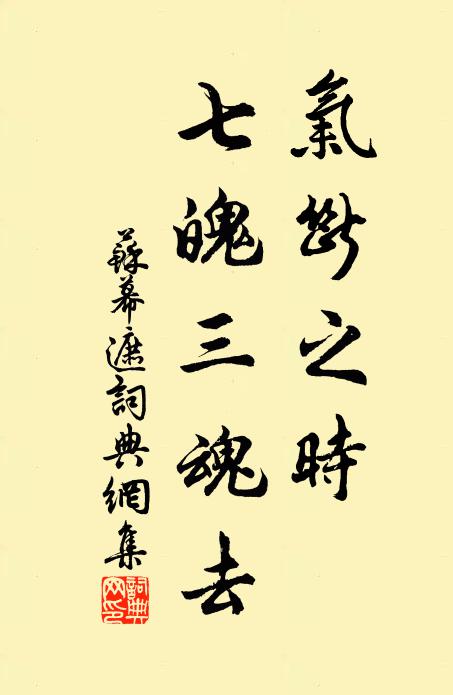 氣斷之時
七魄三魂去
蘇幕遮詞典網集
詞典
网印